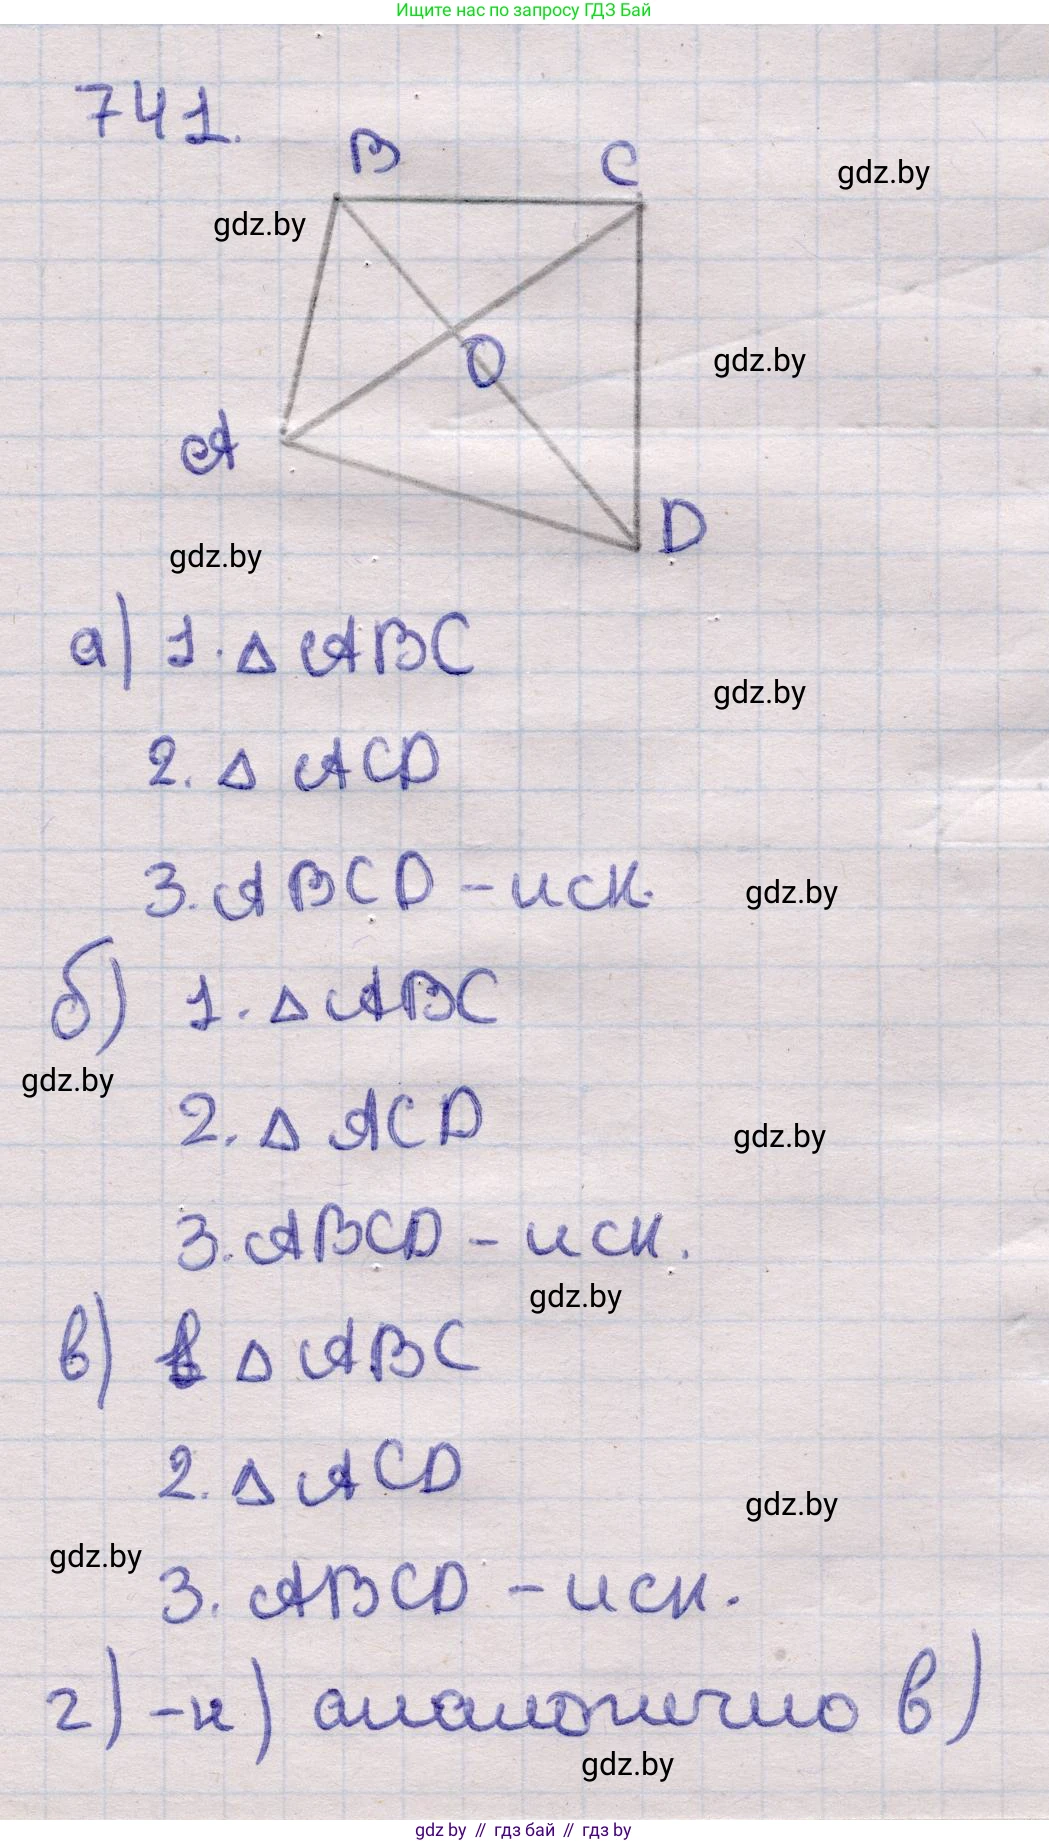 Ищите нас по запросу ГДЗ Бай
741.
B
C
gdz.by
gdz.by
O
gdz.by
A
D
gdz.by
а) 1. Δ ABC
gdz.by
2. Δ ACD
3. ABCD - иск.
gdz.by
б) 1. Δ ABC
gdz.by
2. Δ ACD
gdz.by
3. ABCD - иск.
gdz.by
в) 1. Δ ABC
2. Δ ACD
gdz.by
gdz.by
3. ABCD - иск.
г) - к) аналогично в)
gdz.by
gdz.by // гдз бай // гдз by